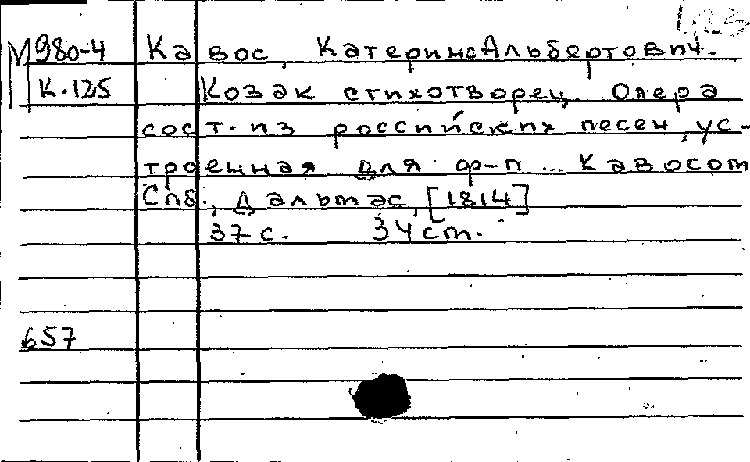 М980-4 Кавос, Катерино Альбертович.
К.125 Козак стихотворец. Опера
сост. из российских песен, ус-
троенная для ф-п ... Кавосом
Спб., Дальмас, [1814]
37 с. 34 см.
657